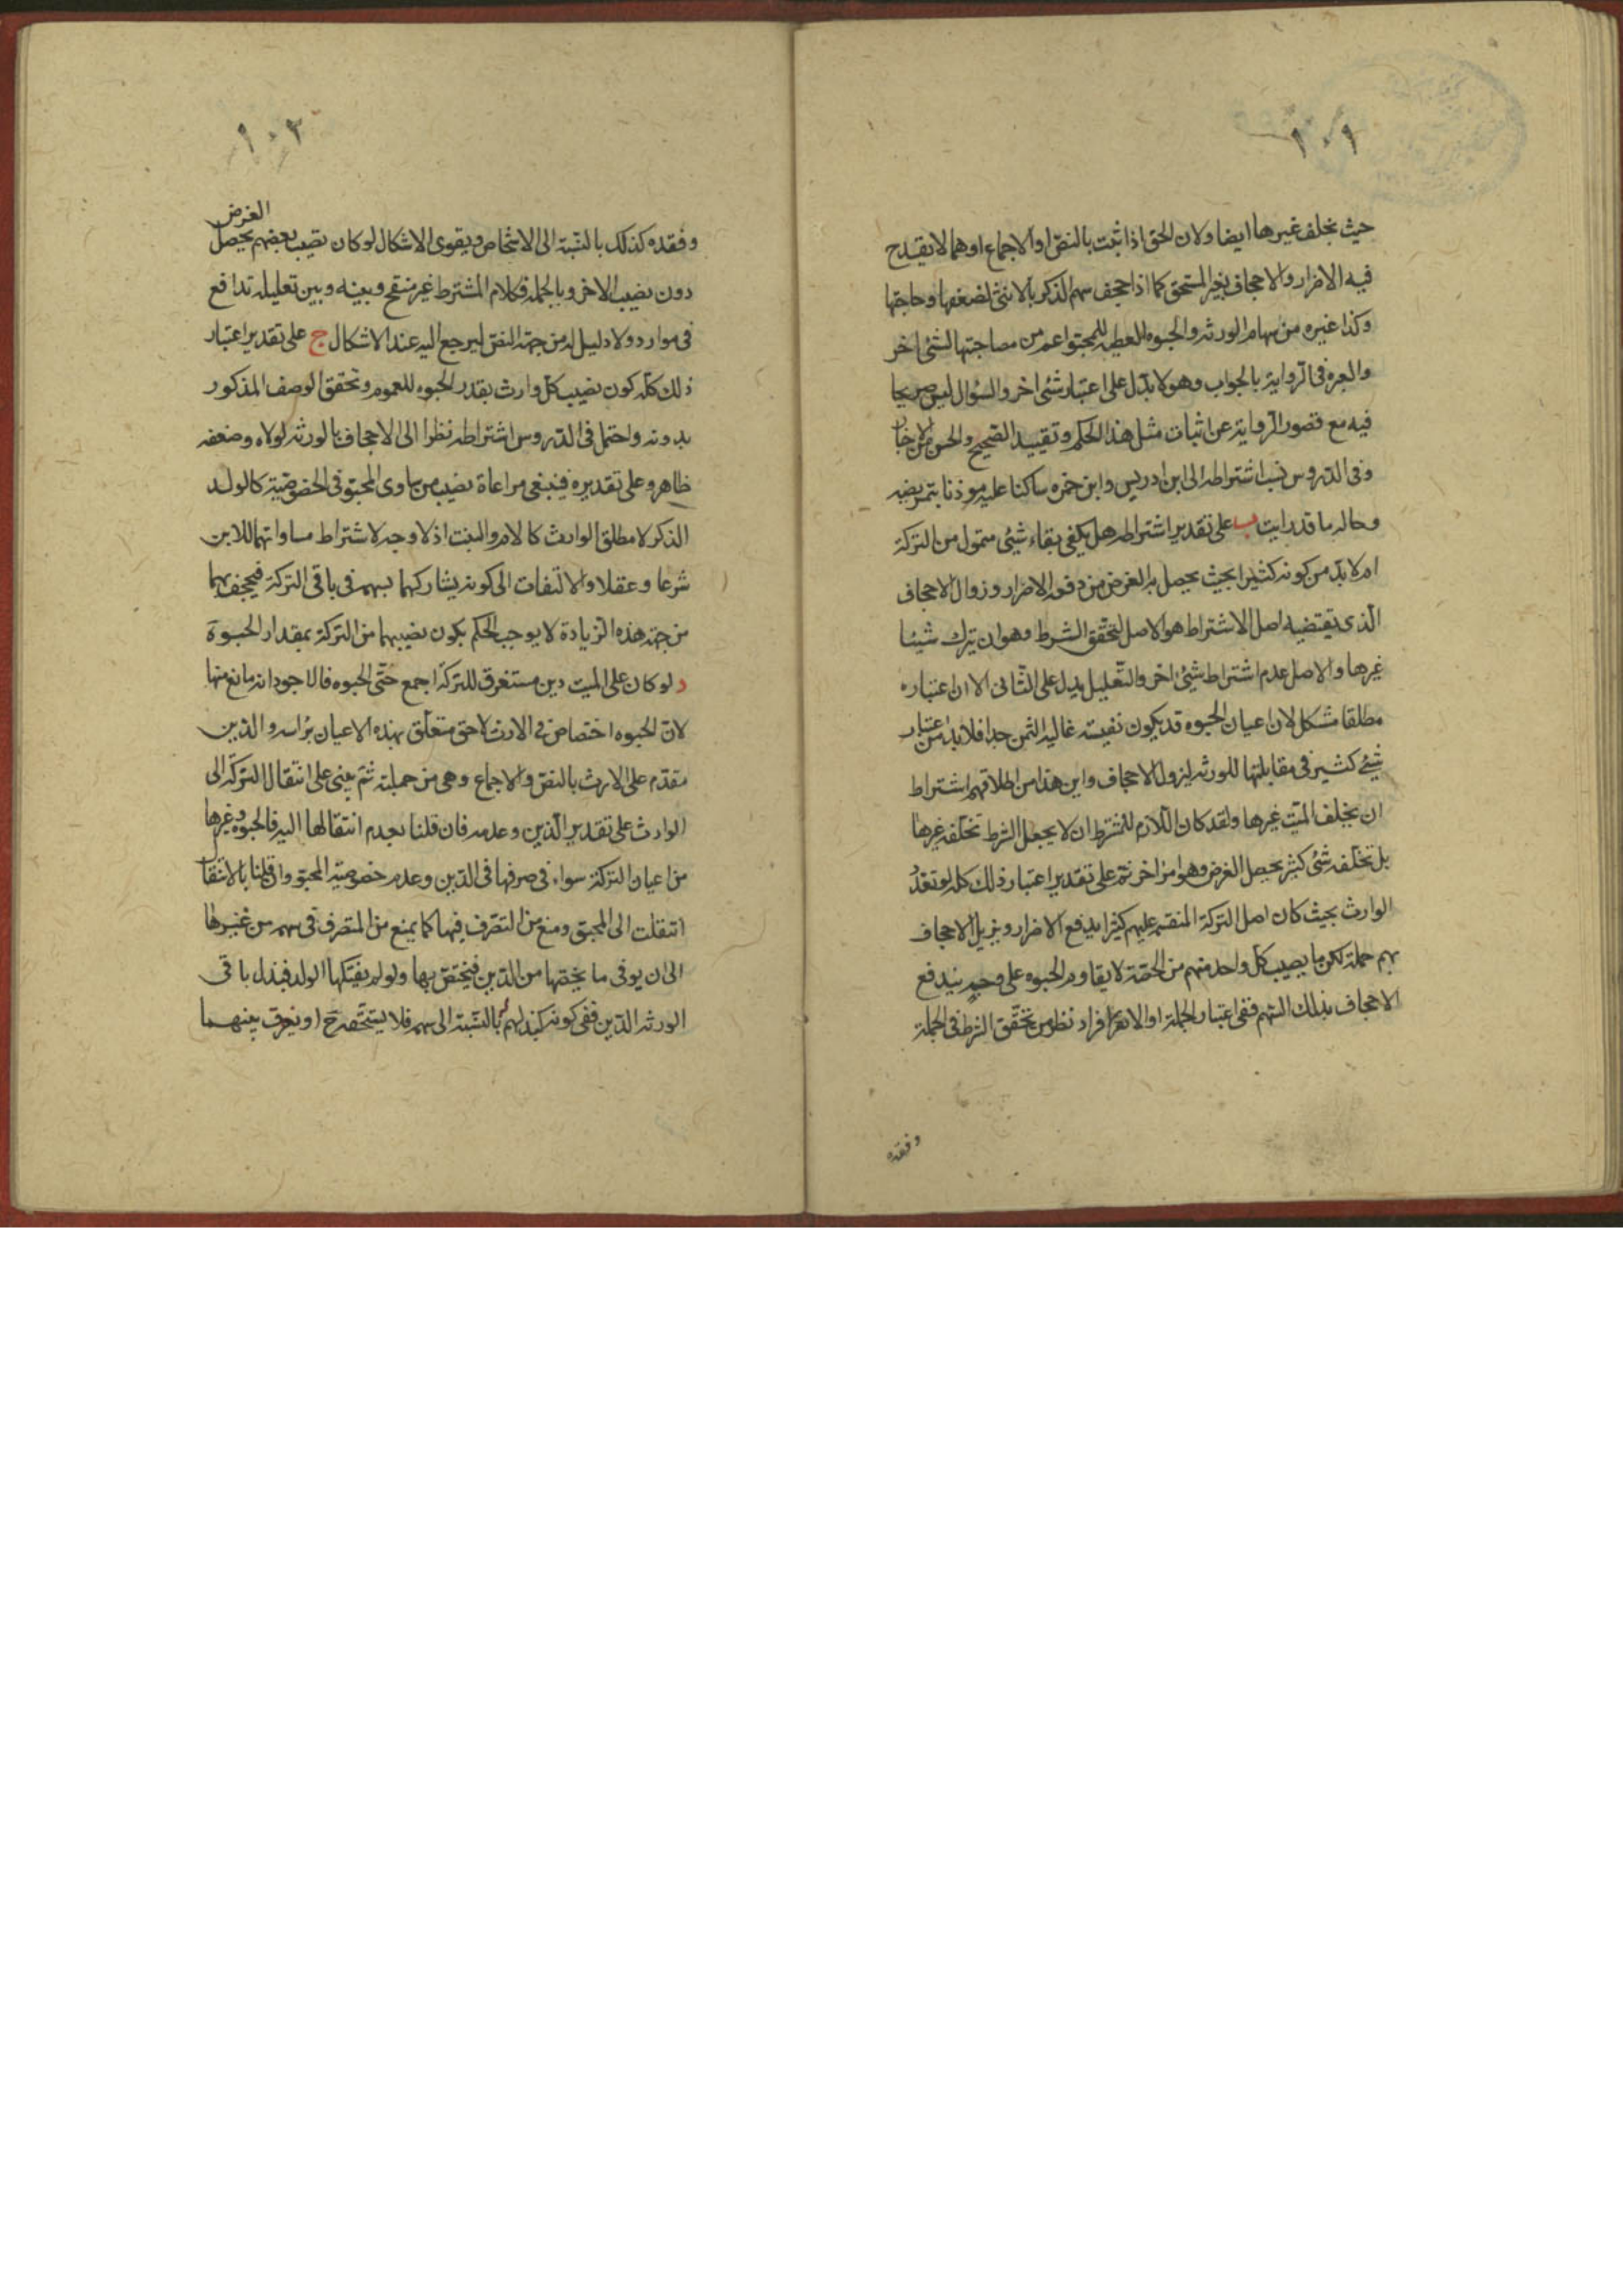 ١٠٢
حيث يخلف غيرها ايضا ولان الحق اذا ثبت بالنص او الاجماع او هما لا يقدح
فيه الاضرار والاجحاف بغير المستحق كما اذا اجحف سهم الذكر بالانثى لضعفها وحاجتها
وكذا غيره من سهام الورثه والحبوه للعطيه للمحبو اعم من مصاحبتها لشئ اخر
والعبره فى الرواية بالجواب وهو لا يدل على اعتبار شئ اخر والسؤال ليس صريحا
فيه مع قصور الرواية عن اثبات مثل هذا الحكم وتقييد الصحيح والحسن من الاخبار
وفى الدروس نسب اشتراطه الى ابن ادريس وابن حمزه ساكتا عليه موذنا بتمريضه
وحاله ما قد رايت ب على تقدير اشتراطه هل يكفى بقاء شئ متمول من التركة
ام لابد من كونه كثيرا بحيث يحصل به الغرض من دفع الاضرار وزوال الاجحاف
الذى يقتضيه اصل الاشتراط هو الاصل لتحقق الشرط وهو ان يترك شيئا
غيرها والاصل عدم اشتراط شئ اخر والتعليل يدل على الثانى الا ان اعتباره
مطلقا مشكل لان اعيان الحبوه قد يكون نفيسته غالية الثمن جدا فلا بد من اعتبار
شئ كثير فى مقابلتها للورثه ليزول الاجحاف واين هذا من اطلاقهم اشتراط
ان يخلف الميت غيرها ولقد كان اللازم للمشترط ان لا يجعل الشرط تخلفه غيرها
بل تخلفه شئ كثير يحصل الغرض وهو امر اخر ثم على تقدير اعتبار ذلك كله لو تعدد
الوارث بحيث كان اصل التركة المنقسم عليهم كثيرا يدفع الاضرار ويزيل الاجحاف
بهم جملة لكن ما يصيب كل واحد منهم من الحصة لا يقاوم الحبوه على وجه يندفع
الاجحاف بذلك السهم ففى اعتبار الجملة او الانفراد نظر من تحقق الشرط فى الجملة
وفقده
١٠٣
وفقده كذلك بالنسبة الى الاشخاص ويقوى الاشكال لو كان نصيب بعضهم يحصل الغرض
دون نصيب الاخر وبالجملة فكلام المشترط غير منقح وبينه وبين تعليله تدافع
فى موارد ولا دليل له من جهة النص ليرجع اليه عند الاشكال ج على تقدير اعتبار
ذلك كله كون نصيب كل وارث بقدر الحبوه للعموم وتحقق الوصف المذكور
بدونه واحتمل فى الدروس اشتراطه نظرا الى الاجحاف بالورثه لولاه وضعفه
ظاهر وعلى تقديره فينبغى مراعاة نصيب من ساوى المحبو فى الخصوصية كالولد
الذكر لا مطلق الوارث كالام والبنت اذ لا وجه لاشتراط مساواتهما للابن
شرعا وعقلا والالتفات الى كونه يشاركهما بسهمه فى باقى التركة فيجحف بهما
من جهة هذه الزيادة لا يوجب الحكم بكون نصيبهما من التركة بمقدار الحبوة
د لو كان على الميت دين مستغرق للتركة اجمع حتى الحبوه فالاجود انه مانع منها
لان الحبوه اختصاص فى الارث لا حق متعلق بهذه الاعيان براسه والدين
مقدم على الارث بالنص والاجماع وهى من جملته ثم يبنى على انتقال التركة الى
الوارث على تقدير الدين وعدمه فان قلنا بعدم انتقالها اليه فالحبوه وغيرها
من اعيان التركة سواء فى صرفها فى الدين وعدم خصوصية المحبو وان قلنا بالانتقا
انتقلت الى المحبو ومنع من التصرف فيها كما يمنع من المتصرف فى سهمه من غيرها
الى ان يوفى ما يخصها من الدين فيختص بها ولو لم يفتكها الولد فبذل باقى
الورثه الدين ففى كونه كبذلهم بالنسبة الى سهمه فلا يستحقه ح او يفرق بينهما